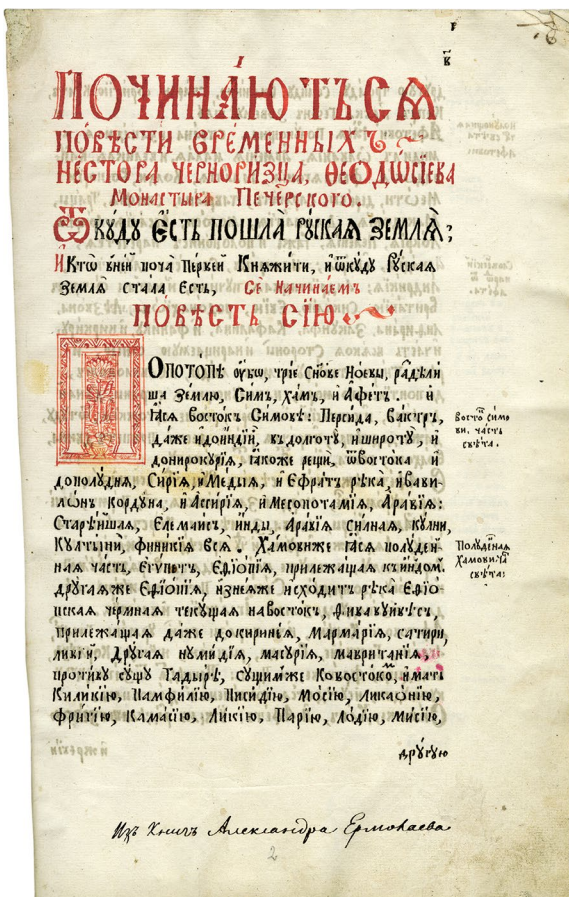 в҃
ПОЧИНА́ЮТЪСѦ
ПО́ВѢСТИ ВРЕ́МЕННЫХЪ
НЕ́СТОРА ЧЕРНОРИ́ЗЦА, ѲЕОДѠ́СЇЕВА
Монастыра Пече́рского.
Ѿкꙋ́дꙋ є҆́сть пошла̀ рꙋ́ская землѧ̀;
И҆ Кто̀ в̾неи поча̀ Пе́рвеи Кнѧжи́ти, и҆ ѿкꙋ́дꙋ Рꙋ́ская
Землѧ̀ стала є҆́сть, Се̑ Начина́емъ
ПО́ВѢСТЬ СЇЮ̀
ПО ПОТО́ПѢ ᲂу҆́бѡ, трїѐ Сн҃ове Но́евы, раздѣли
ша Зе́млю, Си́мъ, Ха́мъ, и҆ А҆фе́тъ. и҆
ꙗ҆́сѧ восто́къ Си́мовѣ: Перси́да, Ва́ктръ,
да́же и҆ до и҆нди́и, въ долготꙋ̀, и҆ широтꙋ̀, и҆
до нирокꙋ́рїѧ, ꙗ҆́коже рещѝ, ѿ восто́ка и҆
до полꙋ́днѧ, Сирі́ѧ, и҆ Ме́дыѧ, и҆ Е҆фра́тъ рѣка̀, и҆ вави-
ло́нъ Ко́рдꙋна, и҆ А҆ссирїѧ, и҆ Месопота́мїѧ, А҆ра́вїѧ:
Старѣ́йшаѧ, Е҆лема́исъ, и҆́нды, А҆ра́вїѧ Си́лнаѧ, кꙋ́лии,
Кꙋлты́ни, финикі́ѧ всѧ̀. Ха́мови же ꙗ҆́сѧ полꙋде́н-
наѧ ча́сть, Е҆гѵ́петъ, Е҆ѳїо́пїѧ, прилежа́щаѧ къ и҆ндомъ.
дрꙋга́ѧже Е҆ѳїо́пїѧ, и҆з неѧ́же и҆схо́дитъ рѣка̀ Е҆ѳїо-
пскаѧ че́рмнаѧ текꙋ́щаѧ на восто́къ, Ѳи́ва
прилежа́щаѧ да́же до кирині́ѧ, Марма́рїѧ, сати́ри,
ливі́и, Дрꙋга́ѧ нꙋми́дїѧ, масꙋ́рїѧ, маврита́нїѧ,
проти́вꙋ сꙋ́щꙋ Гади́рѣ, Сꙋ́щим же Ко восто́комъ, и҆́мать
Килики́ю, Памфили́ю, Писиді́ю, Мосі́ю, Ликаоні́ю,
Фригі́ю, Кама́сїю, Ликі́ю, Ка́рїю, Ло́дїю, Ми́сїю,
дрꙋгꙋ́ю
восто́ⷱ҇ си́мо
ви. ча́сть
свѣ́та.
Полꙋде́ннаѧ
Ха́мови. ча́
свѣ́та:
Изъ Книгъ Александра Ермолаева
2